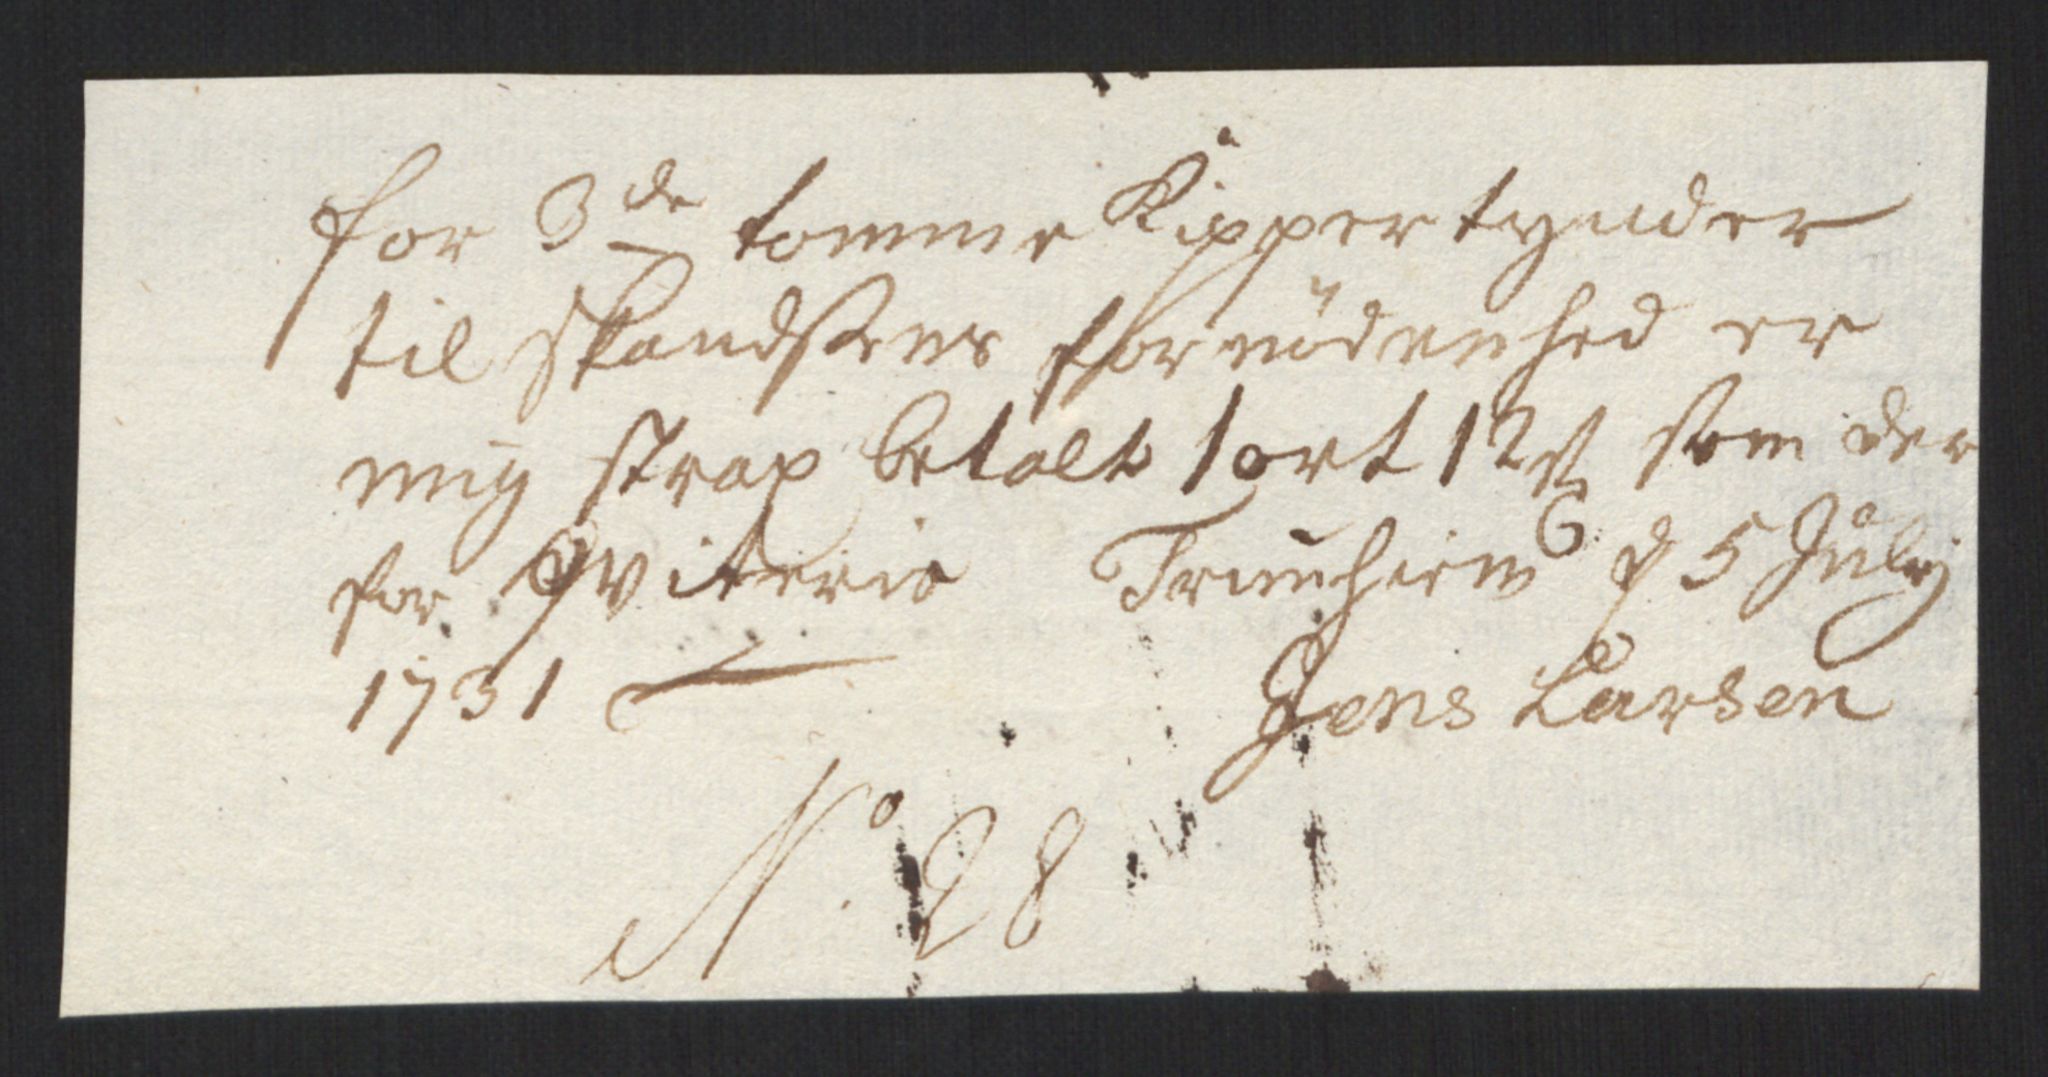 for 3de tomme Kipper tynder
til Skandsens fornödenhed er
mig strax betalt 1 ort 12 s som der
for Qviteris Trunhiem d 5 July
1731
Jens Larsen
No. 28